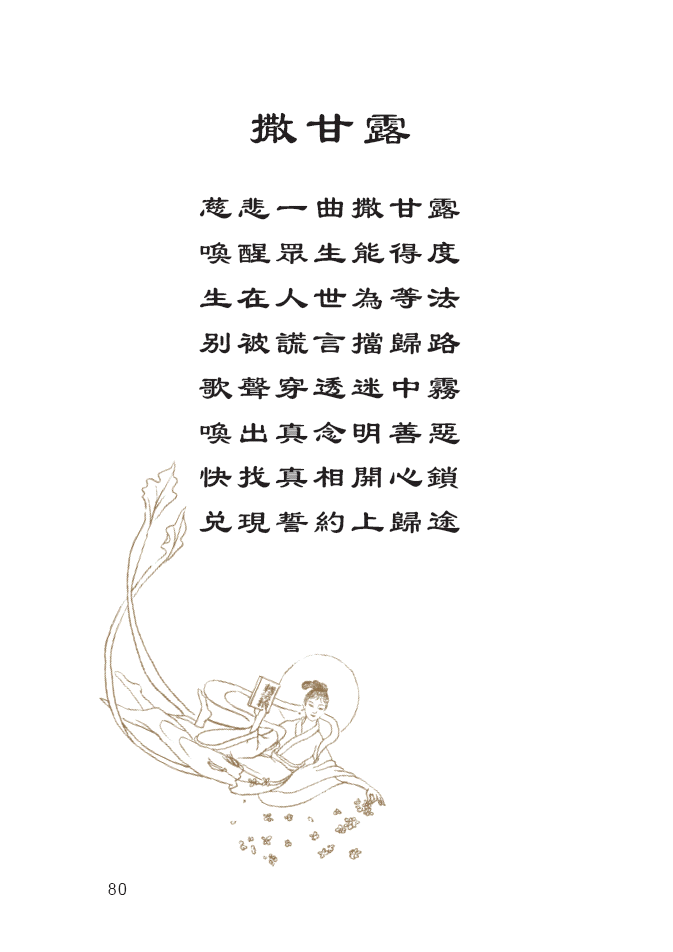 撒甘露
慈悲一曲撒甘露
喚醒眾生能得度
生在人世為等法
別被謊言擋歸路
歌聲穿透迷中霧
喚出真念明善惡
快找真相開心鎖
兌現誓約上歸途
80